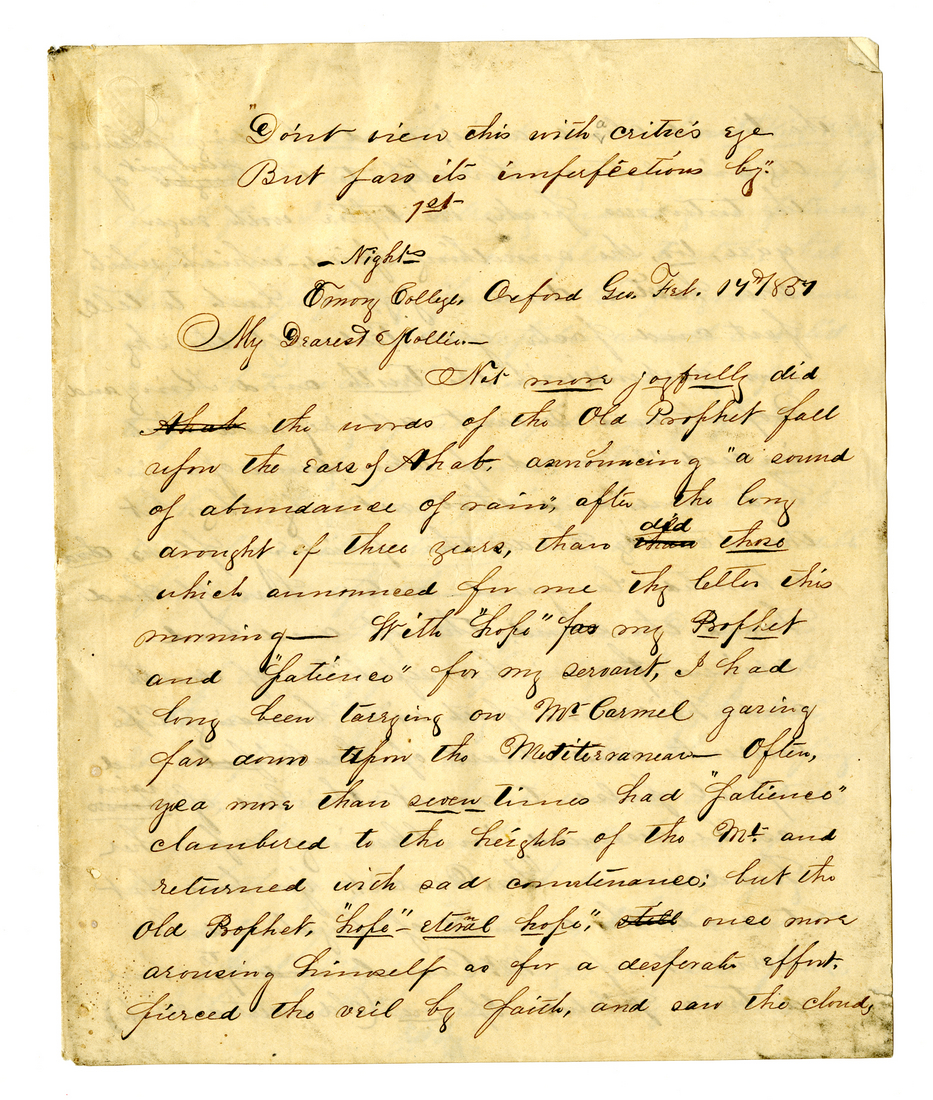 "Do'nt view this with a critic's eye
But pass its imperfections by."
1st
- Nights
Emory College, Oxford Geo. Feb. 17th/857
My Dearest Mollie—
Not more joyfully did
Ahab the words of the Old Prophet fall
upon the ears of Ahab, announcing "a sound
of abundance of rain", after the long
drought of three years, than than did those
which announced for me thy letter this
morning— With "hope" for my Prophet
and "patience" for my servant, I had
long been tarrying on Mt. Carmel gazing
far down upon the Mediterranean— Often,
yea more than seven times had "patience"
clambered to the heights of the Mt. and
returned with sad countenance; but the
Old Prophet, "hope"— eternal hope", still once more
arousing himself as for a desperate effort,
pierced the veil by faith, and saw the clouds